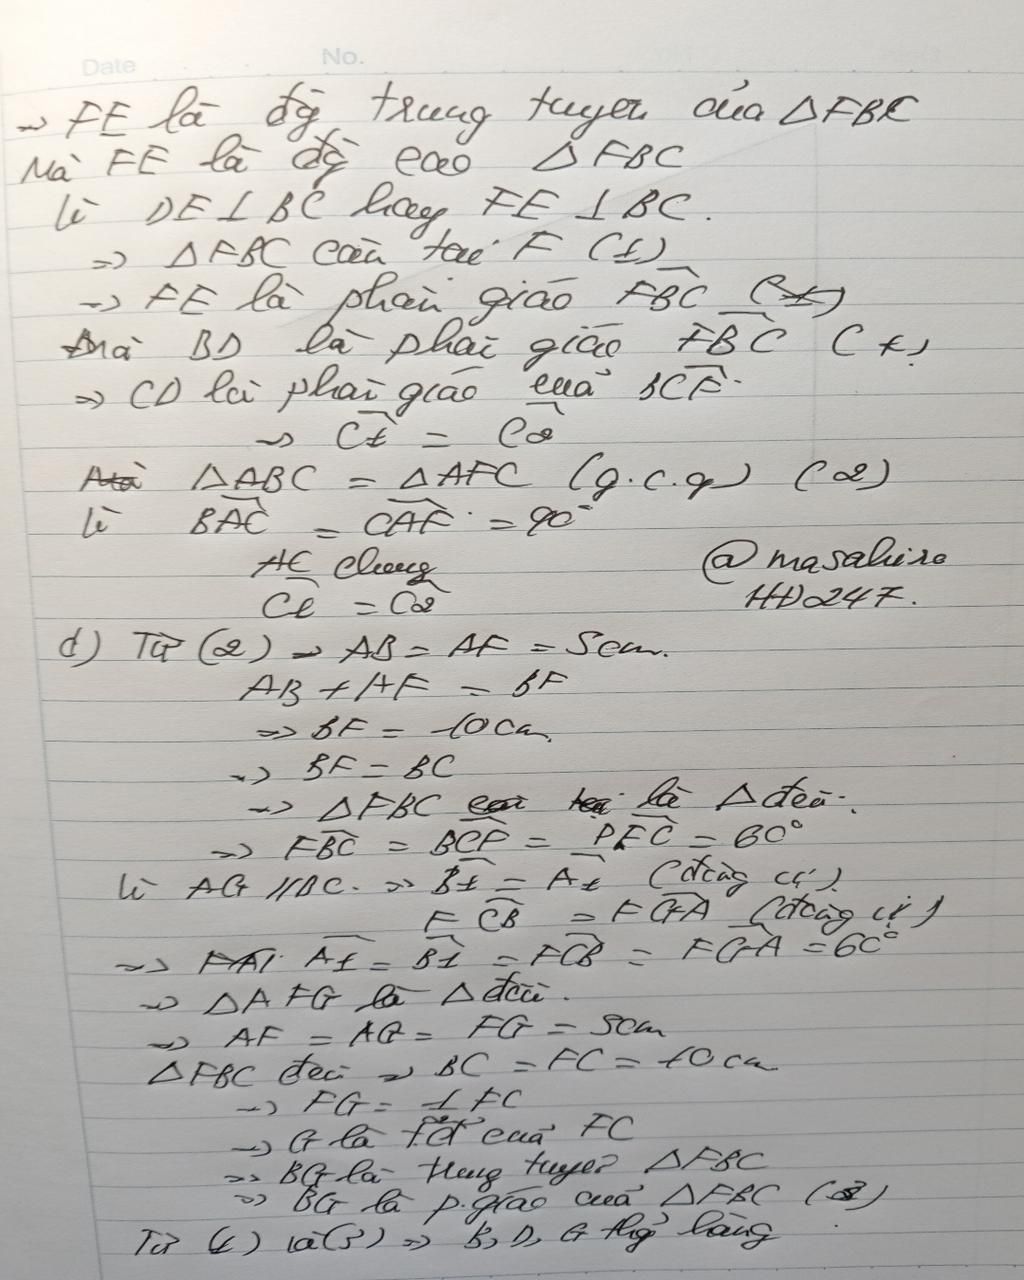 Date No.
=> FE là đg trung tuyến của △FBC
Mà FE là đg cao △FBC
Vì DE⊥BC hay FE⊥BC.
=> △FBC cân tại F (1)
=> FE là phân giác FBC
mà BD là phân giác FBC (*)
=> CD là phân giác của BCF.
=> C1 = C2
△ABC = △AFC (g.c.g) (2)
Vì BAC = CAF = 90°
AC chung
C1 = C2
@masahiro
HD247.
d) Từ (2) => AB = AF = 5cm.
AB + AF = BF
=> BF = 10cm.
=> BF = BC
=> △FBC là △ đều.
=> FBC = BCF = BFC = 60°
Vì AG//BC. => B1 = A1 (đồng vị).
FCB = FGA (đồng vị)
=> A1 = B1 = FCB = FGA = 60°
=> △AFG là △ đều.
=> AF = AG = FG = 5cm
△FBC đều => BC = FC = 10cm
=> FG = FC
=> G là của FC
=> BG là trung tuyến △FBC
=> BG là p.giác của △FBC (3)
Từ và (3) => B, D, G thg hàng